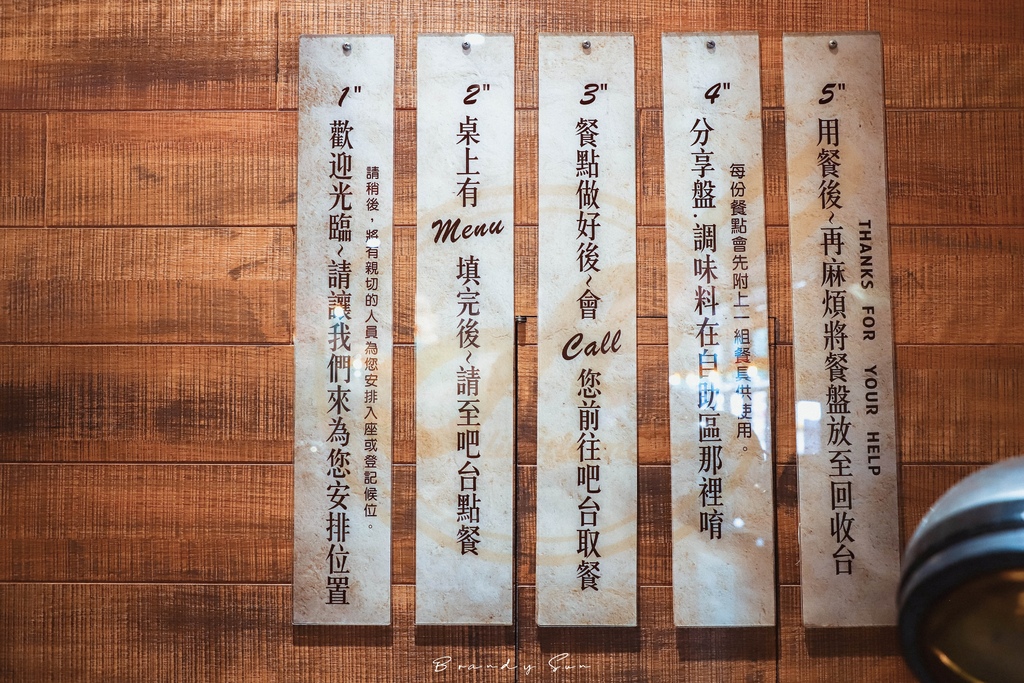 1"
歡迎光臨~請讓我們來為您安排位置
請稍後，將有親切的人員為您安排入座或登記候位。
2"
桌上有 Menu 填完後~請至吧台點餐
3"
餐點做好後~會 Call 您前往吧台取餐
4"
分享盤.調味料在自助區那裡唷
每份餐點會先附上一組餐具供使用。
5"
用餐後~再麻煩將餐盤放至回收台
THANKS FOR YOUR HELP
Brandy Sun